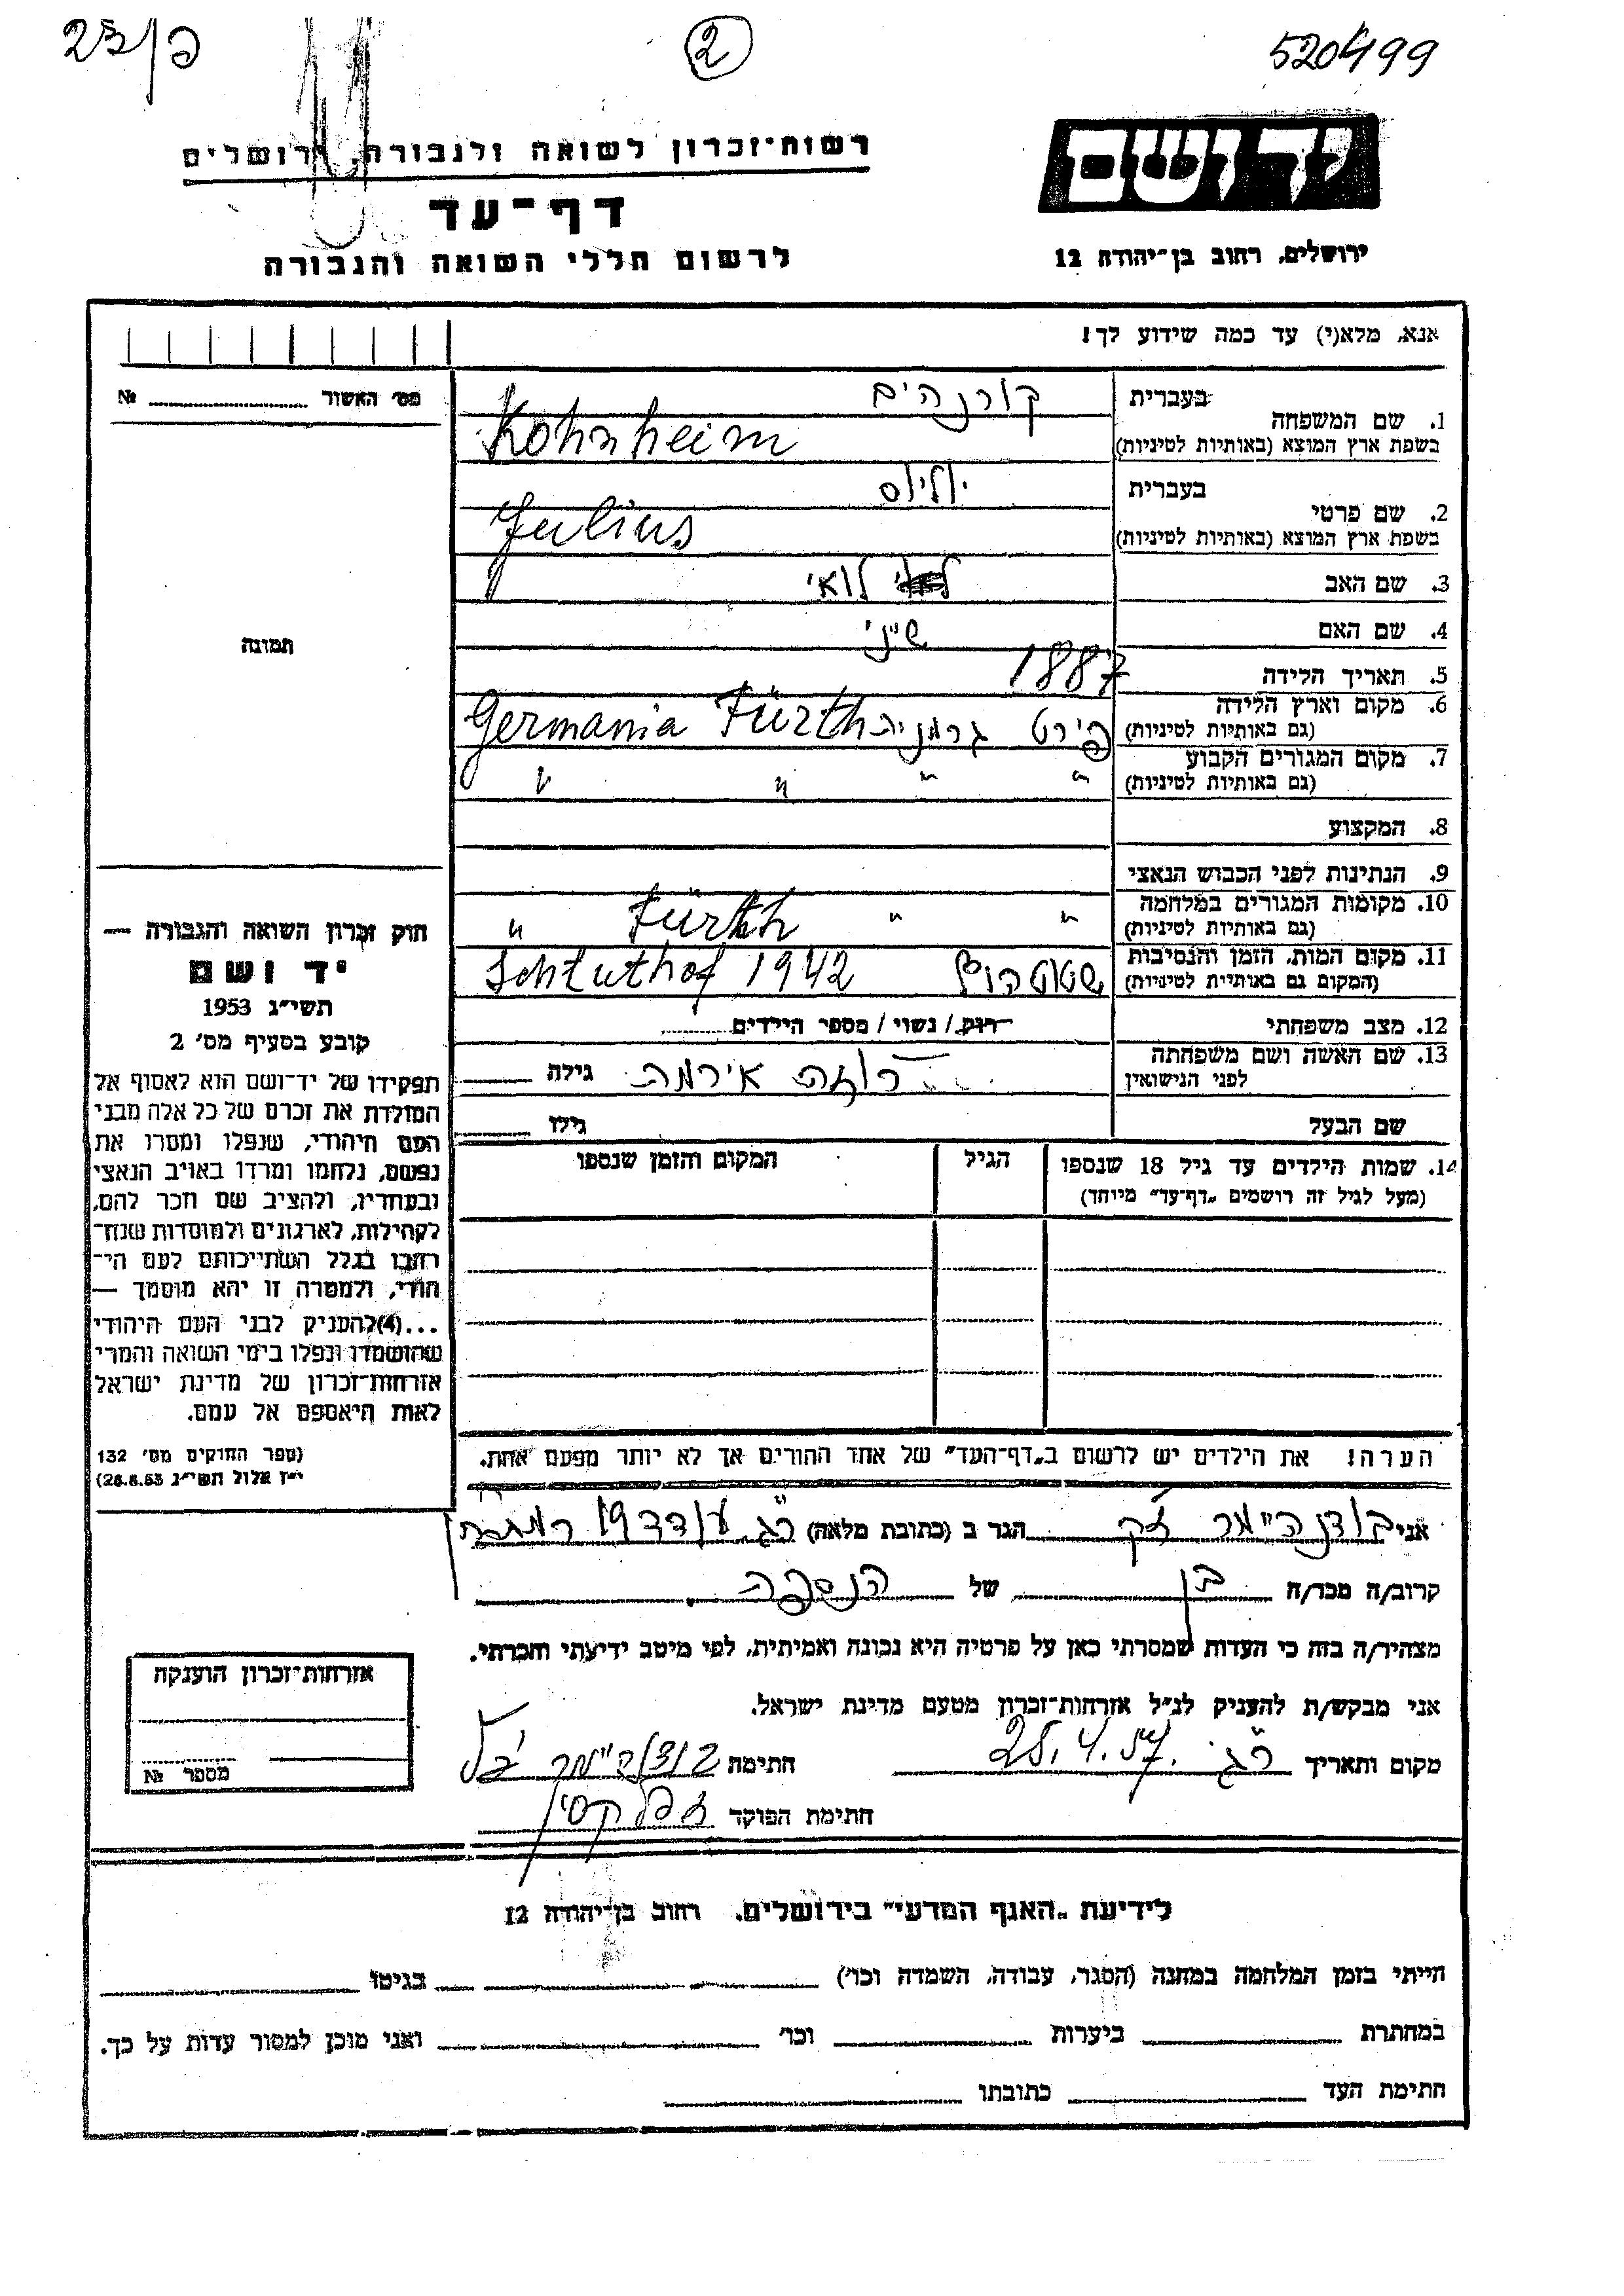 23/פ
2
520499
יד ושם
רשות־זכרון לשואה ולגבורה, ירושלים
דף־עד
לרשום חללי השואה והגבורה
ירושלים, רחוב בן־יהודה 12
אנא, מלא(י) עד כמה שידוע לך!
מס' האשור № 
1. שם המשפחה
בעברית קורנהים
בשפת ארץ המוצא (באותיות לטיניות) Kohnheim
2. שם פרטי
בעברית יוליוס
בשפת ארץ המוצא (באותיות לטיניות) Julius
3. שם האב לואי
4. שם האם
תמונה
5. תאריך הלידה 1887
6. מקום וארץ הלידה
(גם באותיות לטיניות) פירט גרמניה Fürth Germania
7. מקום המגורים הקבוע
(גם באותיות לטיניות) " " " "
8. המקצוע
9. הנתינות לפני הכבוש הנאצי
10. מקומות המגורים במלחמה
(גם באותיות לטיניות) " " Fürth "
11. מקום המות, הזמן והנסיבות
(המקום גם באותיית לטיניות) שטוטהוף Schtuthof 1942
12. מצב משפחתי רוק / נשוי / מספר הילדים
13. שם האשה ושם משפחתה
לפני הנישואין רוזה אירמה גילה
שם הבעל גילו
14. שמות הילדים עד גיל 18 שנספו
(מעל לגיל זה רושמים "דף־עד" מיוחד)
הגיל
המקום והזמן שנספו
חוק זכרון השואה והגבורה —
יד ושם
תשי"ג 1953
קובע בסעיף מס' 2
תפקידו של יד־ושם הוא לאסוף אל
המולדת את זכרם של כל אלה מבני
העם היהודי, שנפלו ומסרו את
נפשם, נלחמו ומרדו באויב הנאצי
ובעוזריו, ולהציב שם וזכר להם,
לקהילות, לארגונים ולמוסדות שנח־
רבו בגלל השתייכותם לעם הי־
הודי, ולמטרה זו יהא מוסמך —
...(4) להעניק לבני העם היהודי
שהושמדו ונפלו בימי השואה והמרי
אזרחות־זכרון של מדינת ישראל
לאות היאספם אל עמם.
(ספר החוקים מס' 132
י"ז אלול תשי"ג 28.8.53)
הערה! את הילדים יש לרשום ב"דף־העד" של אחד ההורים אך לא יותר מפעם אחת.
אני הגר ב (כתובת מלאה) ר"ג עודד 19
קרוב/ה מכר/ה בן של הנספה
מצהיר/ה בזה כי העדות שמסרתי כאן על פרטיה היא נכונה ואמיתית, לפי מיטב ידיעתי והכרתי.
אני מבקש/ת להעניק לנ"ל אזרחות־זכרון מטעם מדינת ישראל.
מקום ותאריך ר"ג 28.4.57 חתימה
חתימת הפוקד
אזרחות־זכרון הוענקה
מספר №
לידיעת "האגף המדעי" בירושלים, רחוב בן־יהודה 12
הייתי בזמן המלחמה במחנה (הסגר, עבודה, השמדה וכו') בגיטו
במחתרת ביערות וכו' ואני מוכן למסור עדות על כך.
חתימת העד כתובתו